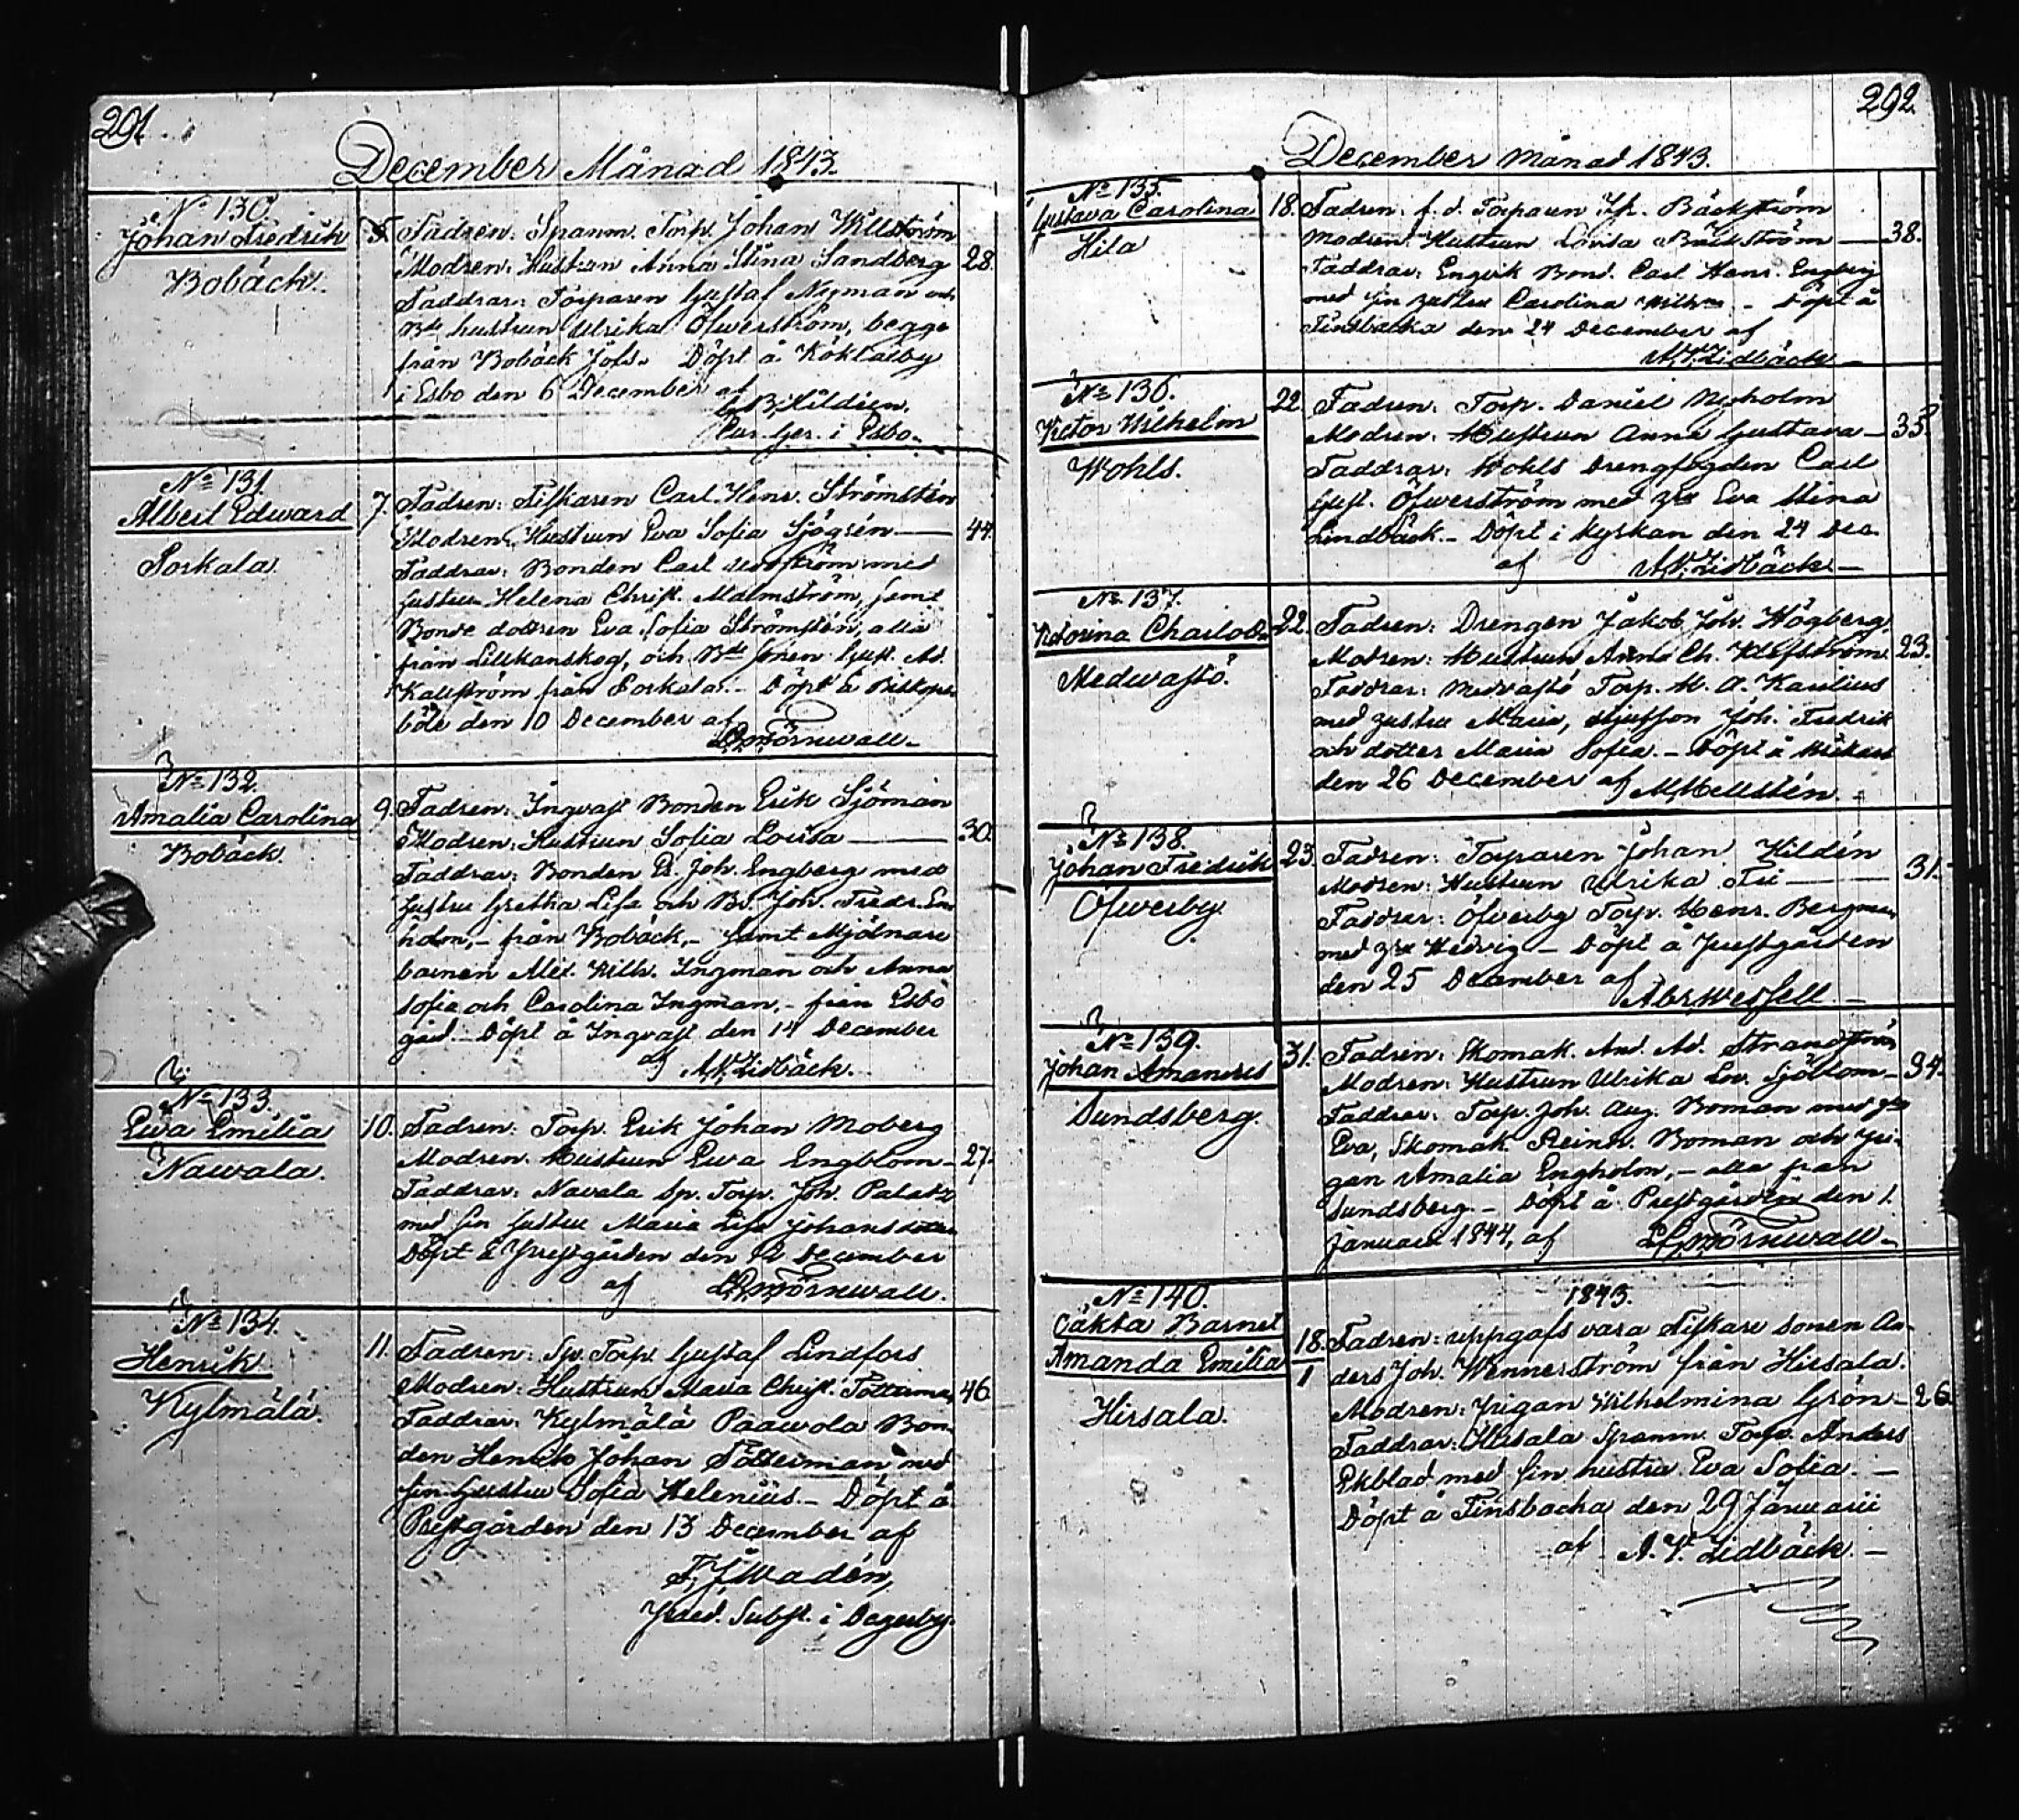 291
December Månad 1843.
No 130.
Johan Fredrik
Bobäck.
5. Fadren: Spanm. Torp. Johan Willström
Modren: Hustrun Anna Stina Sandberg 28.
Faddrar: Torparen Gustaf Nyman och
Bde hustrun Ulrika Öfwerström, begge
från Bobäck Jofs. Döpt å Köklaxby
i Esbo den 6 December af
Esbo.
No 131.
Albert Edward
Porkala
7. Fadren: Fiskaren Carl Henr. Strömstén
Modren: Hustrun Eva Sofia Sjögrén 44.
Faddrar: Bonden Carl med
hustru Helena Christ. Malmström, samt
Bonde dottren Eva Sofia Strömstén, alla
från Lillkanskog, och Bde sonen Gust. Ad.
Kallström från Porkala. Döpt å Biskops-
böle den 10 December af
Törnwall.
No 132.
Amalia Carolina
Bobäck.
9. Fadren: Ingvast Bonden Erik Sjöman
Modren: Hustrun Sofia Lovisa 30.
Faddrar: Bonden Er. Joh. Engberg med
hustru Gretha Lisa och Bd. Joh. Fredr. En-
holm, från Bobäck, samt Mjölnare
barnen Alex. Wilh. Ingman och Anna
Sofia och Carolina Ingman, från Esbo
gård. Döpt å Ingvast den 14 December
af A.V. Lidbäck.
No 133.
Ewa Emilia
Nawala.
10. Fadren: Torp. Erik Johan Moberg
Modren: Hustrun Ewa Engblom 27.
Faddrar: Navala Sp. Torp. Joh. Palatz
med sin hustru Maria Lisa Johansdotter
Döpt å Prestgården den 12 December
af Törnwall.
No 134.
Henrik
Kylmälä.
11. Fadren: Sp. Torp. Gustaf Lindfors
Modren: Hustrun Maria Christ. Totterman 46.
Faddrar: Kylmälä Paawola Bon-
den Henrik Johan Totterman med
sin hustru Sofia Helenius. Döpt å
Prestgården den 13 December af
F. J. Wadén,
Pred. Subst. i Degerby.
292.
December månad 1843.
No 135.
Gustava Carolina
Hila
18. Fadren: f.d. Torparen Bäckström
Modren: Hustrun Lovisa Bäckström 38.
Faddrar: Engvik Bond. Carl Henr. Engberg
med sin hustru Carolina Döpt å
Finsbacka den 24 December af
A.V. Lidbäck
No 136.
Victor Wilhelm
Wohls.
22. Fadren: Torp. Daniel Nyholm
Modren: Hustrun Anna Gustava 35.
Faddrar: Wohls Drengfogden Carl
Gust. Öfwerström med Eva Stina
Lindbäck. Döpt i kyrkan den 24 Dec.
af A.V. Lidbäck
No 137.
Victorina Charlotta
Medvastö.
22. Fadren: Drengen Jakob Joh. Högberg
Modren: Hustrun Anna Ch. 23.
Faddrar: Medvastö Torp. Karelius
med hustru Maria, styfson Joh. Fredrik
och dotter Maria Sofia. Döpt å
den 26 December af M. Hellstén.
No 138.
Johan Fredrik
Öfwerby.
23. Fadren: Torparen Johan Wildén
Modren: Hustrun Ulrika Fri 31.
Faddrar: Öfverby Torp. Henr. Bergman
med Hedvig Döpt å Prestgården
den 25 December af Abr. Wessell
No 139.
Johan Amandus
Sundsberg.
31. Fadren: Skomak. And. Ad. Strandström
Modren: Hustrun Ulrika Lov. Sjöblom 34.
Faddrar: Torp. Joh. Aug. Boman med
Eva, Skomak. Reinh. Boman och Pi-
gan Amalia Engholm, alla från
Sundsberg. Döpt å Prestgården den 1.
Januari 1844, af Törnwall.
1843.
No 140.
Oäkta Barnet
Amanda Emilia
Hirsala.
18/1 Fadren: uppgafs vara Fiskare Sonen An-
ders Joh. Wennerström från Hirsala.
Modren: Pigan Wilhelmina Grön 26
Faddrar: Hirsala Spanm. Torp. Anders
Ekblad med sin hustru Eva Sofia.
Döpt å Finsbacka den 29 Januarii
af A.V. Lidbäck.